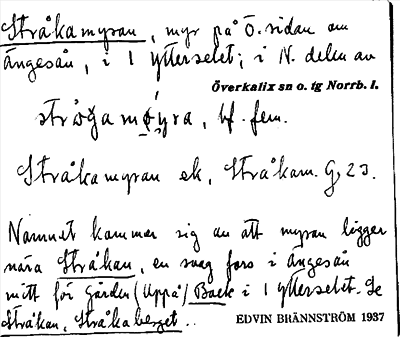 Stråkamyran, myr på Ö. sidan om
Ängesån, i 1 ytterselet; i N. delen av
Överkalix sn o. tg Norrb. l.
bf. fem.
Stråkamyran ek, Stråkam. G, 23.
Namnet kommer sig av att myran ligger
nära Stråkan, en svag fors i Ängesån
mitt för gården (Uppå) Back i 1 ytterselet. Se
Stråkan, Stråkaberget..
EDVIN BRÄNNSTRÖM 1937